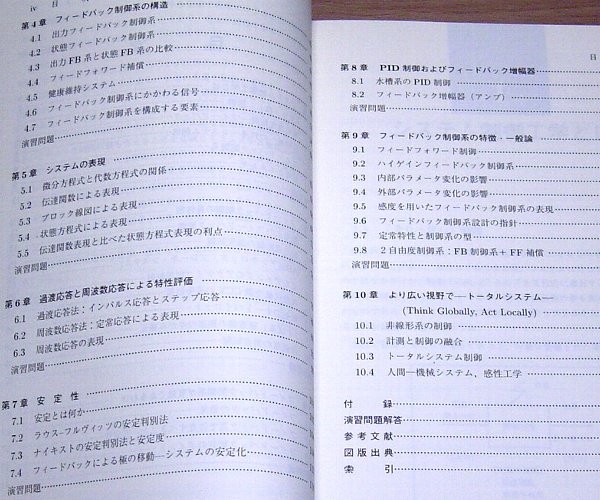 iv 目
第4章 フィードバック制御系の構造
4.1 出力フィードバック制御系
4.2 状態フィードバック制御系
4.3 出力FB系と状態FB系の比較
4.4 フィードフォワード補償
4.5 健康維持システム
4.6 フィードバック制御系にかかわる信号
4.7 フィードバック制御系を構成する要素
演習問題
第5章 システムの表現
5.1 微分方程式と代数方程式の関係
5.2 伝達関数による表現
5.3 ブロック線図による表現
5.4 状態方程式による表現
5.5 伝達関数表現と比べた状態方程式表現の利点
演習問題
第6章 過渡応答と周波数応答による特性評価
6.1 過渡応答法：インパルス応答とステップ応答
6.2 周波数応答法：定常応答による表現
6.3 周波数応答の表現
演習問題
第7章 安定性
7.1 安定とは何か
7.2 ラウス–フルヴィッツの安定判別法
7.3 ナイキストの安定判別法と安定度
7.4 フィードバックによる極の移動—システムの安定化
演習問題
目
第8章 PID制御およびフィードバック増幅器
8.1 水槽系のPID制御
8.2 フィードバック増幅器（アンプ）
演習問題
第9章 フィードバック制御系の特徴・一般論
9.1 フィードフォワード制御
9.2 ハイゲインフィードバック制御系
9.3 内部パラメータ変化の影響
9.4 外部パラメータ変化の影響
9.5 感度を用いたフィードバック制御系の表現
9.6 フィードバック制御系設計の指針
9.7 定常特性と制御系の型
9.8 2自由度制御系：FB制御系＋FF補償
演習問題
第10章 より広い視野で—トータルシステム—
(Think Globally, Act Locally)
10.1 非線形系の制御
10.2 計測と制御の融合
10.3 トータルシステム制御
10.4 人間—機械システム、感性工学
付録
演習問題解答
参考文献
図版出典
索引